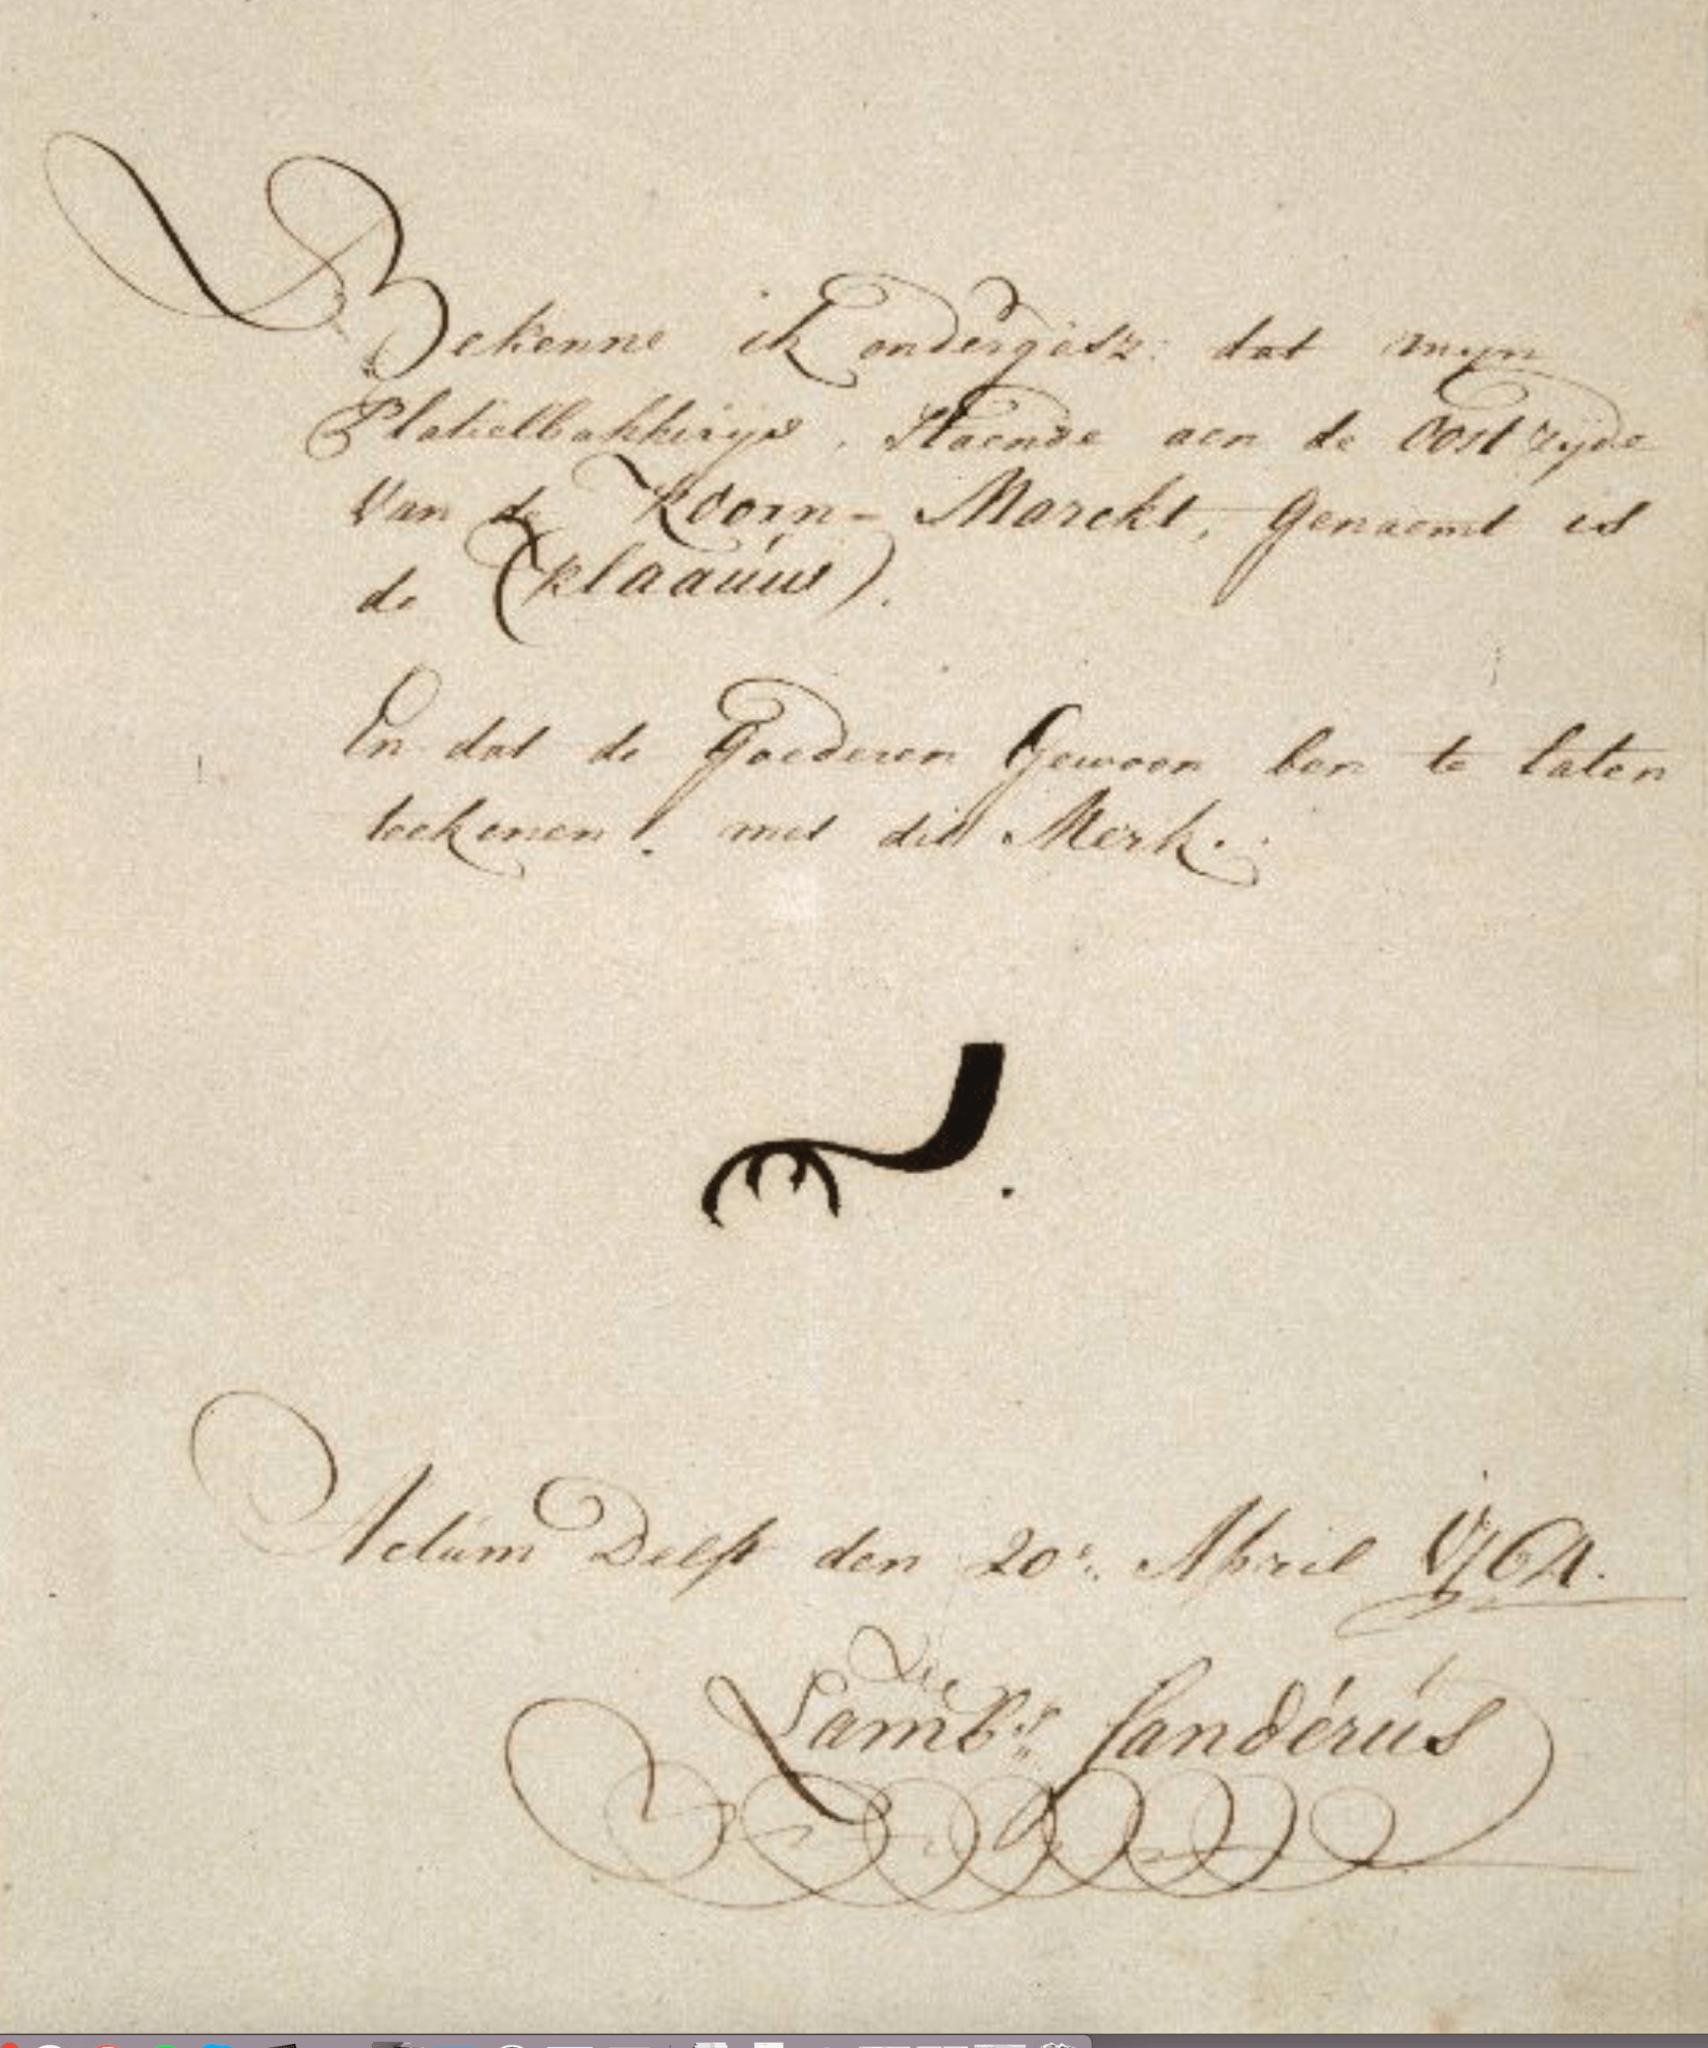 Bekenne ik ondergesz: dat mijn
Platielbakkerije, Staende aen de Oost zijde
Van de Koorn-Marckt, Genaemt is
de (klaaúw).
En dat de Goederen Gewoon ben te laten
teekenen, met dit Merk.
Actúm Delft den 20e. April 1764.
Lambs. Sandérús